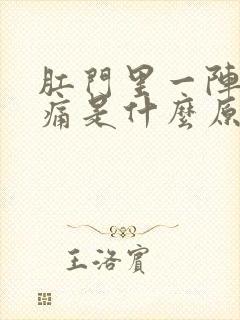 肛門里一陣
痛是什麼原
王洛賓